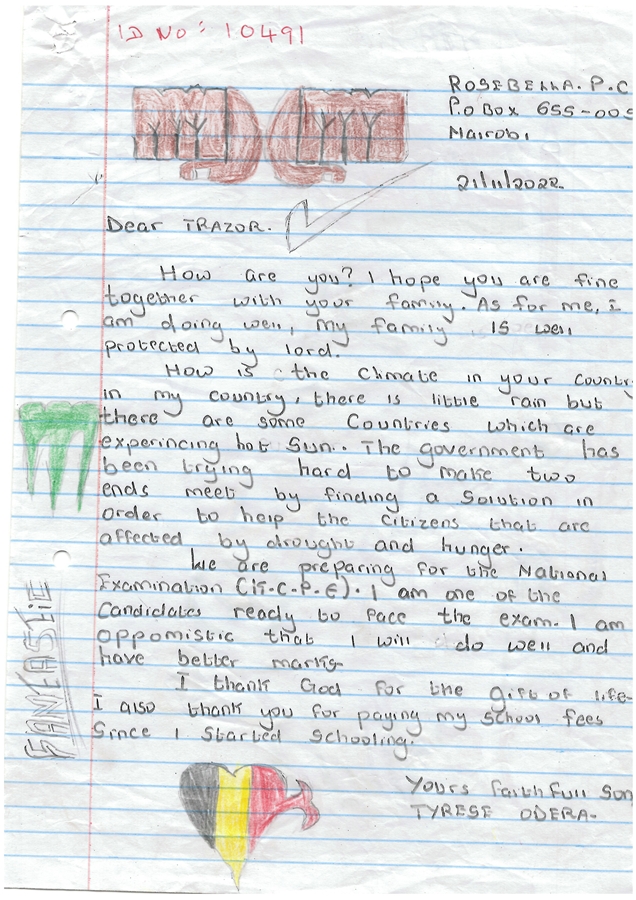 ID No: 10491
ROSEBELLA. P.C
P.o Box 655-005
Nairobi
21/11/2022
Dear TRAZOR.
How are you? I hope you are fine
together with your family. As for me, I
am doing well, my family is well
protected by lord.
How is the Climate in your Country
in my country, there is little rain but
there are some Countries which are
experincing hot Sun.. The government has
been trying hard to make two
ends meet by finding a solution in
order to help the citizens that are
affected by drought and hunger.
We are preparing for the National
Examination (K.C.P.E). I am one of the
Candidates ready to face the exam. I am
oppomistic that I will do well and
have better marks-
I thank God for the gift of life-
I also thank you for paying my school fees
Since I started schooling.
FANTASTIC
Yours faithfull Son
TYRESE ODERA.